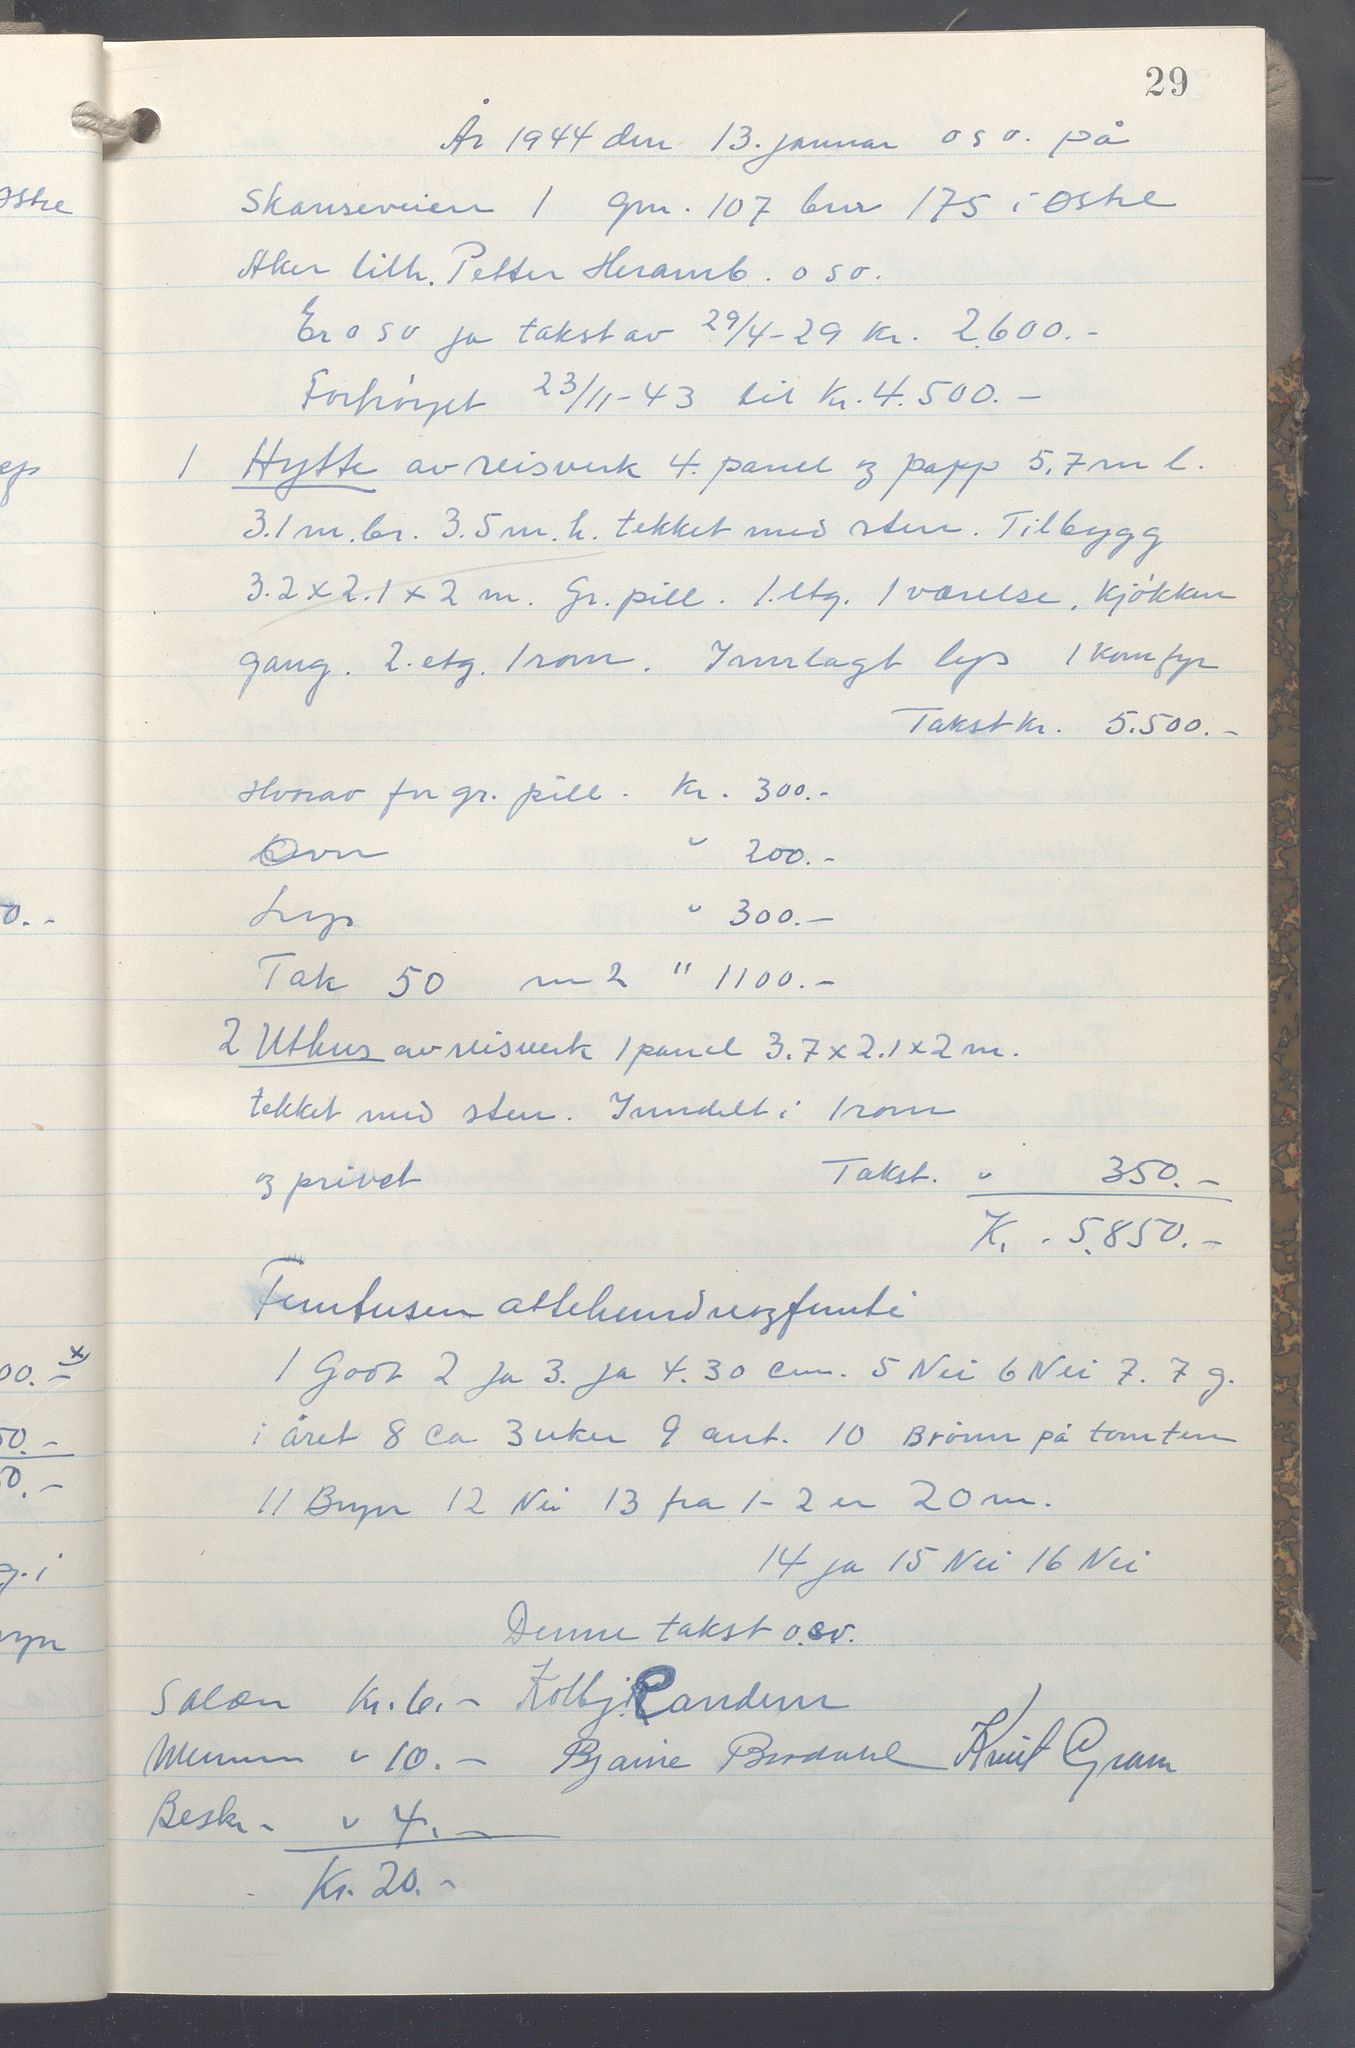 29
År 1944 den 13. januar osv. på
Skanseveien 1 gnr. 107 bnr 175 i Østre
Aker tilh. Petter Heramb. osv.
Er osv ja takst av 29/4-29 kr. 2.600.-
Forhöyet 23/11-43 til kr. 4.500.-
1 Hytte av reisverk 4. panel og papp 5,7 m l.
3.1 m. br. 3.5 m. h. tekket med sten. Tilbygg
3.2 x 2.1 x 2 m. Gr. pill. 1. etg. 1 værelse, kjökken
gang. 2. etg. 1 rom. Innlagt lys 1 komfyr
Takst kr. 5.500.-
Hvorav for gr. pill. Kr. 300.-
Ovn " 200.-
Lys " 300.-
Tak 50 m2 " 1100.-
2 Uthus av reisverk 1 panel 3.7 x 2.1 x 2 m.
tekket med sten. Inndelt i 1 rom
og privet Takst. " 350.-
Kr. 5.850.-
Femtusen åttehundreogfemti
1 Godt 2 ja 3. ja 4. 30 cm. 5 Nei 6 Nei 7. 7 g.
i året 8 ca 3 uker 9 ant. 10 Brönn på tomten
11 Bryn 12 Nei 13 fra 1-2 er 20 m.
14 ja 15 Nei 16 Nei
Denne takst o.sv.
Salær Kr. 6.- Kolbj. Randem
Mennene " 10.- Bjarne Bordahl Knut Gram
Beskr. " 4.-
Kr. 20.-